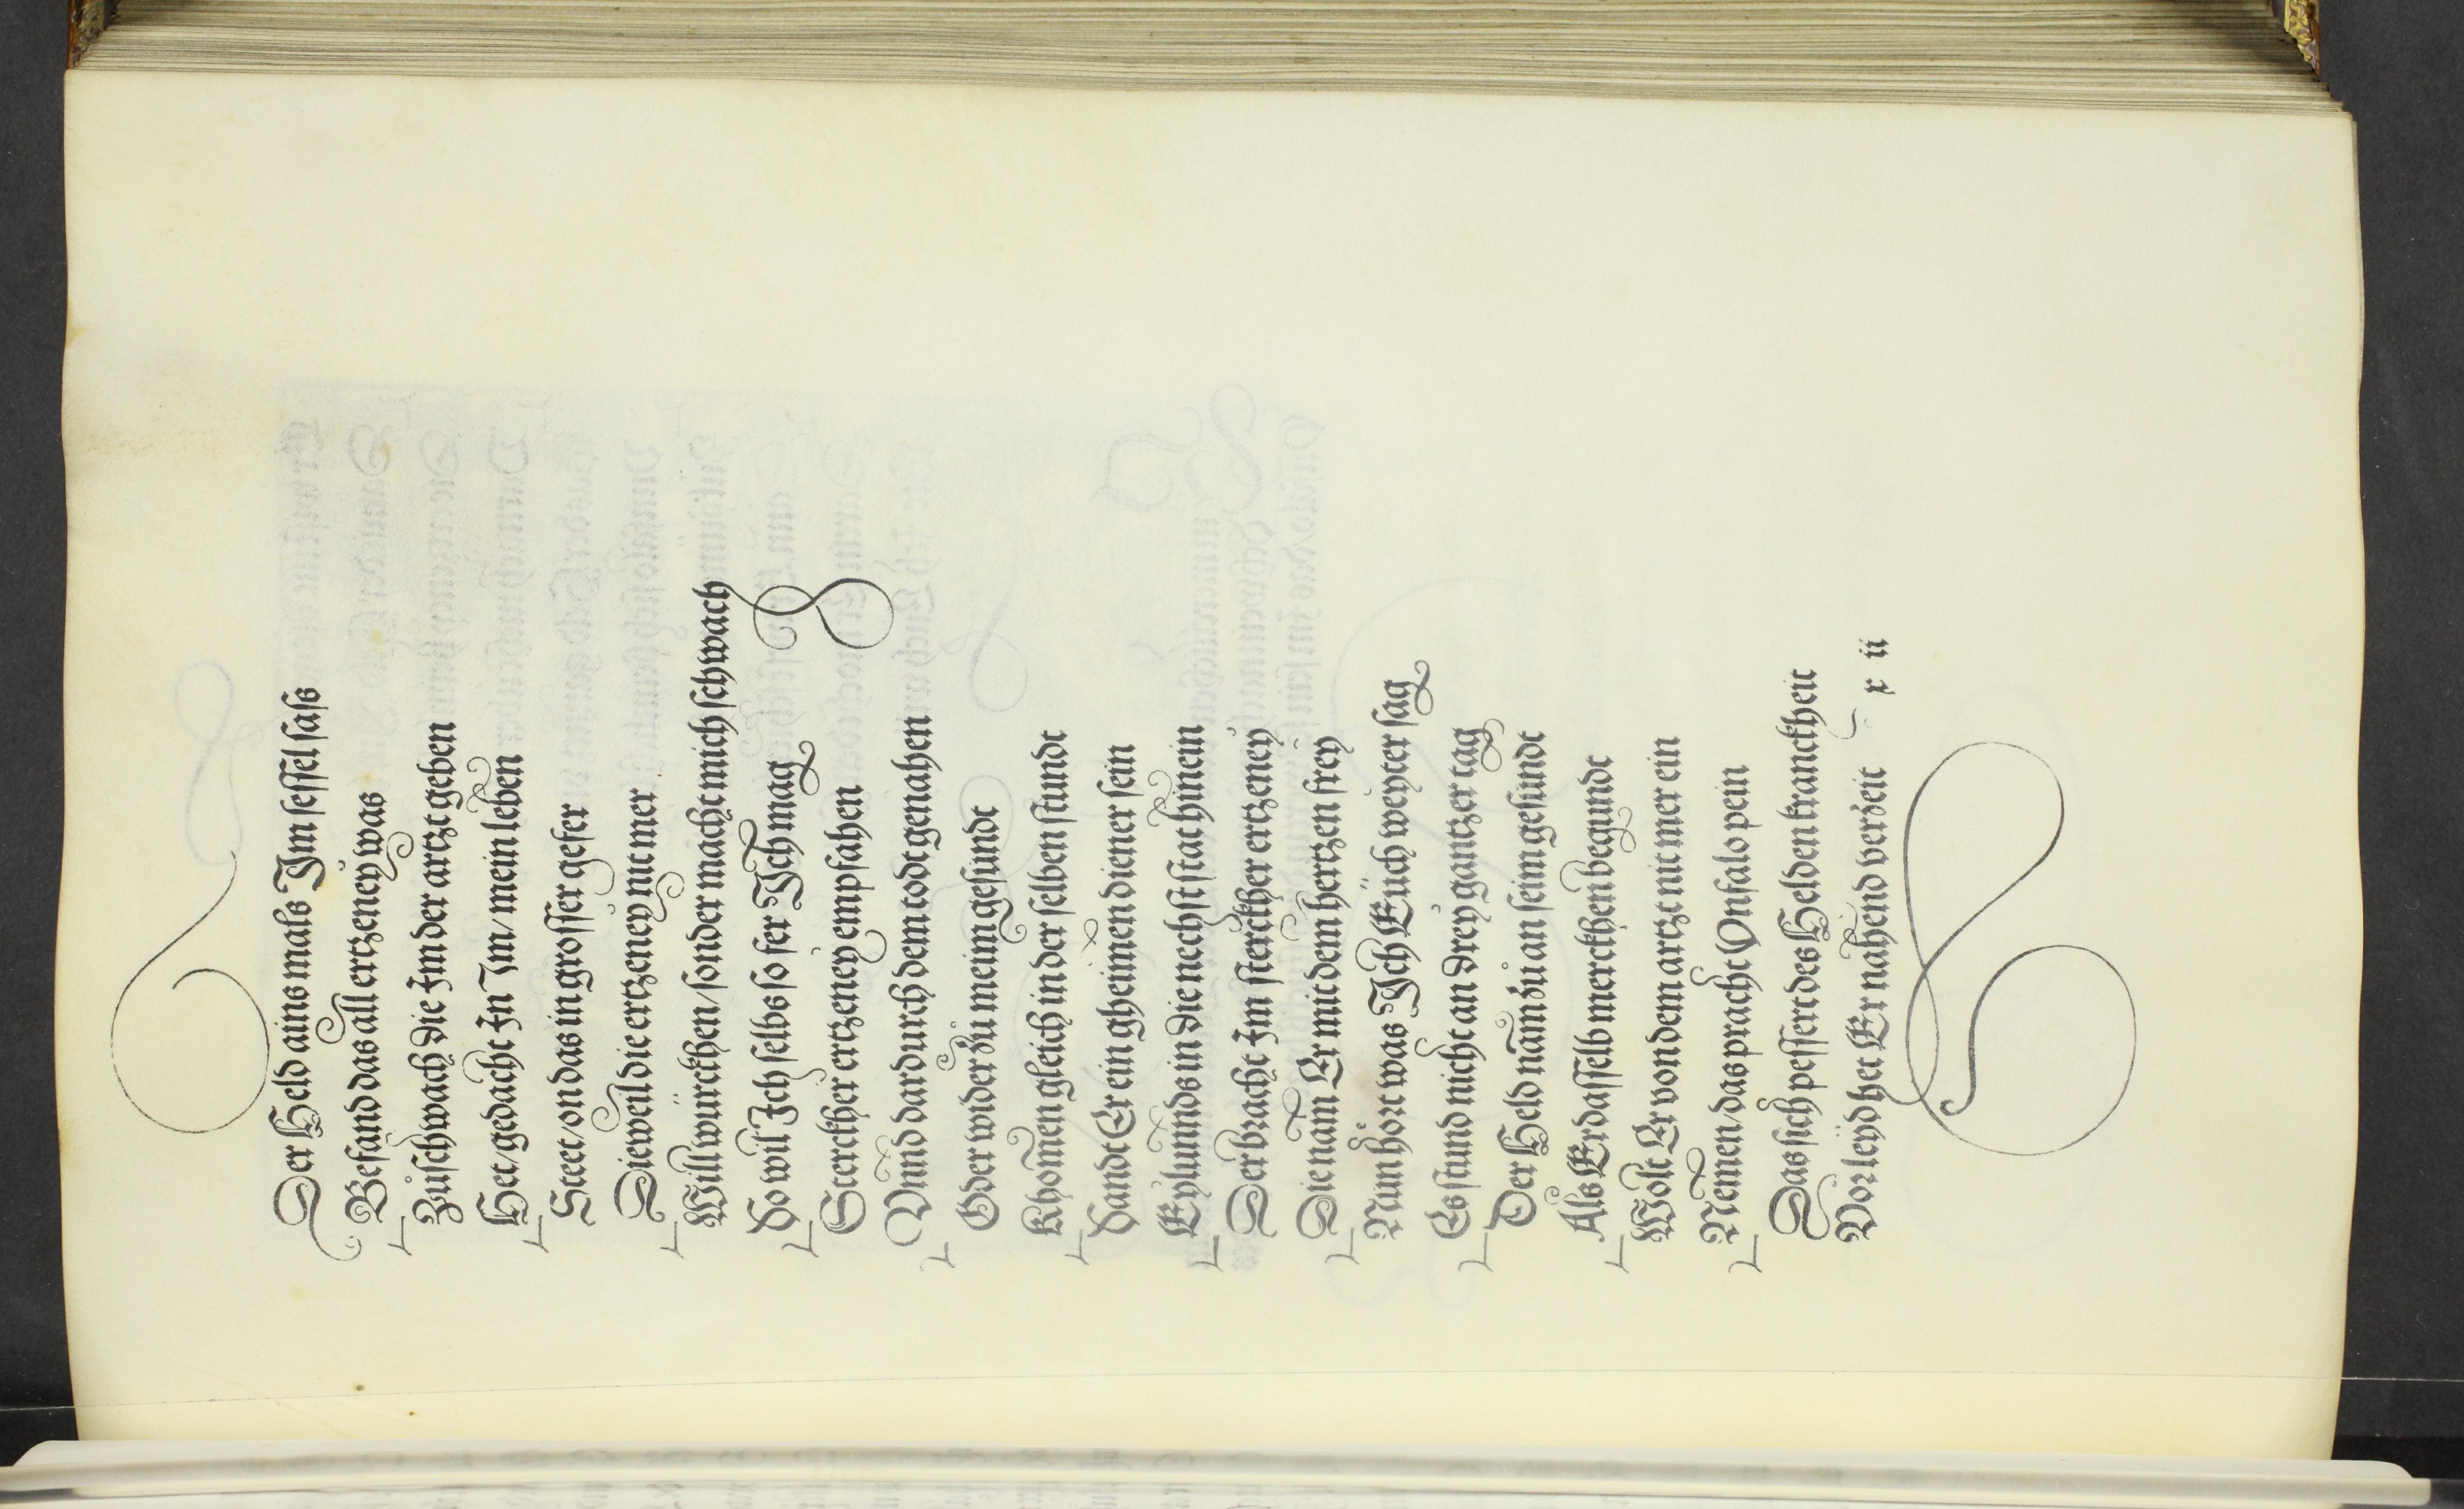 Der Held ains mals Im sessel sass
Befand das all ertzeney was
Zuͦ schwach die Im der artzt geben
Het/gedacht In Im/mein leben
Steet/on das in grosser gefer
Dieweil die ertzeney nit mer
Will würckhen/sonder macht mich schwach
So wil Ich selbs so fer Ich mag
Sterckher ertzeney empfahen
Vnnd dardurch dem todt genahen
Oder wider zuͦ meim gesundt
Khomen gleich in der selben stundt
Sandt Er ein gheimen diener sein
Eylunnds in die nechst stat hinein
Der bracht Im sterckher ertzeney
Die nam Er mit dem hertzen frey
Nun hört was Ich Euch weyter sag
Es stund nicht an drey gantzer tag
Der Held nam zuͦ an seim gesundt
Als Er dasselb merckhen begundt
Wolt Er von dem artzt nit mer ein
Nemen/das pracht Vnfalo pein
Das sich pessert des Helden kranckheit
Vor leyd het Er nahend verzeit
x ii